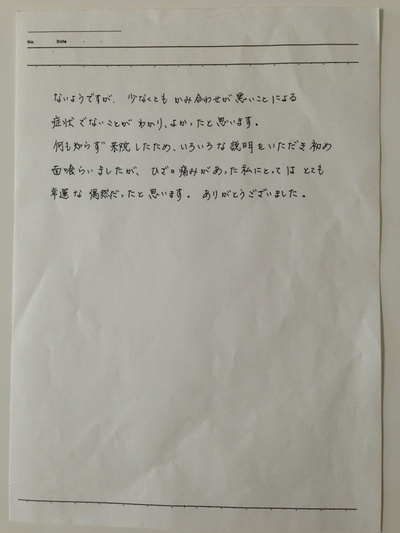 No.
Date ・ ・
ないようですが、少なくとも かみ合わせが悪いことによる
症状でないことが わかり、よかったと思います。
何も知らず 来院したため、いろいろな説明をいただき初め
面喰らいましたが、ひざの痛みがあった私にとっては とても
幸運な 偶然だったと思います。 ありがとうございました。